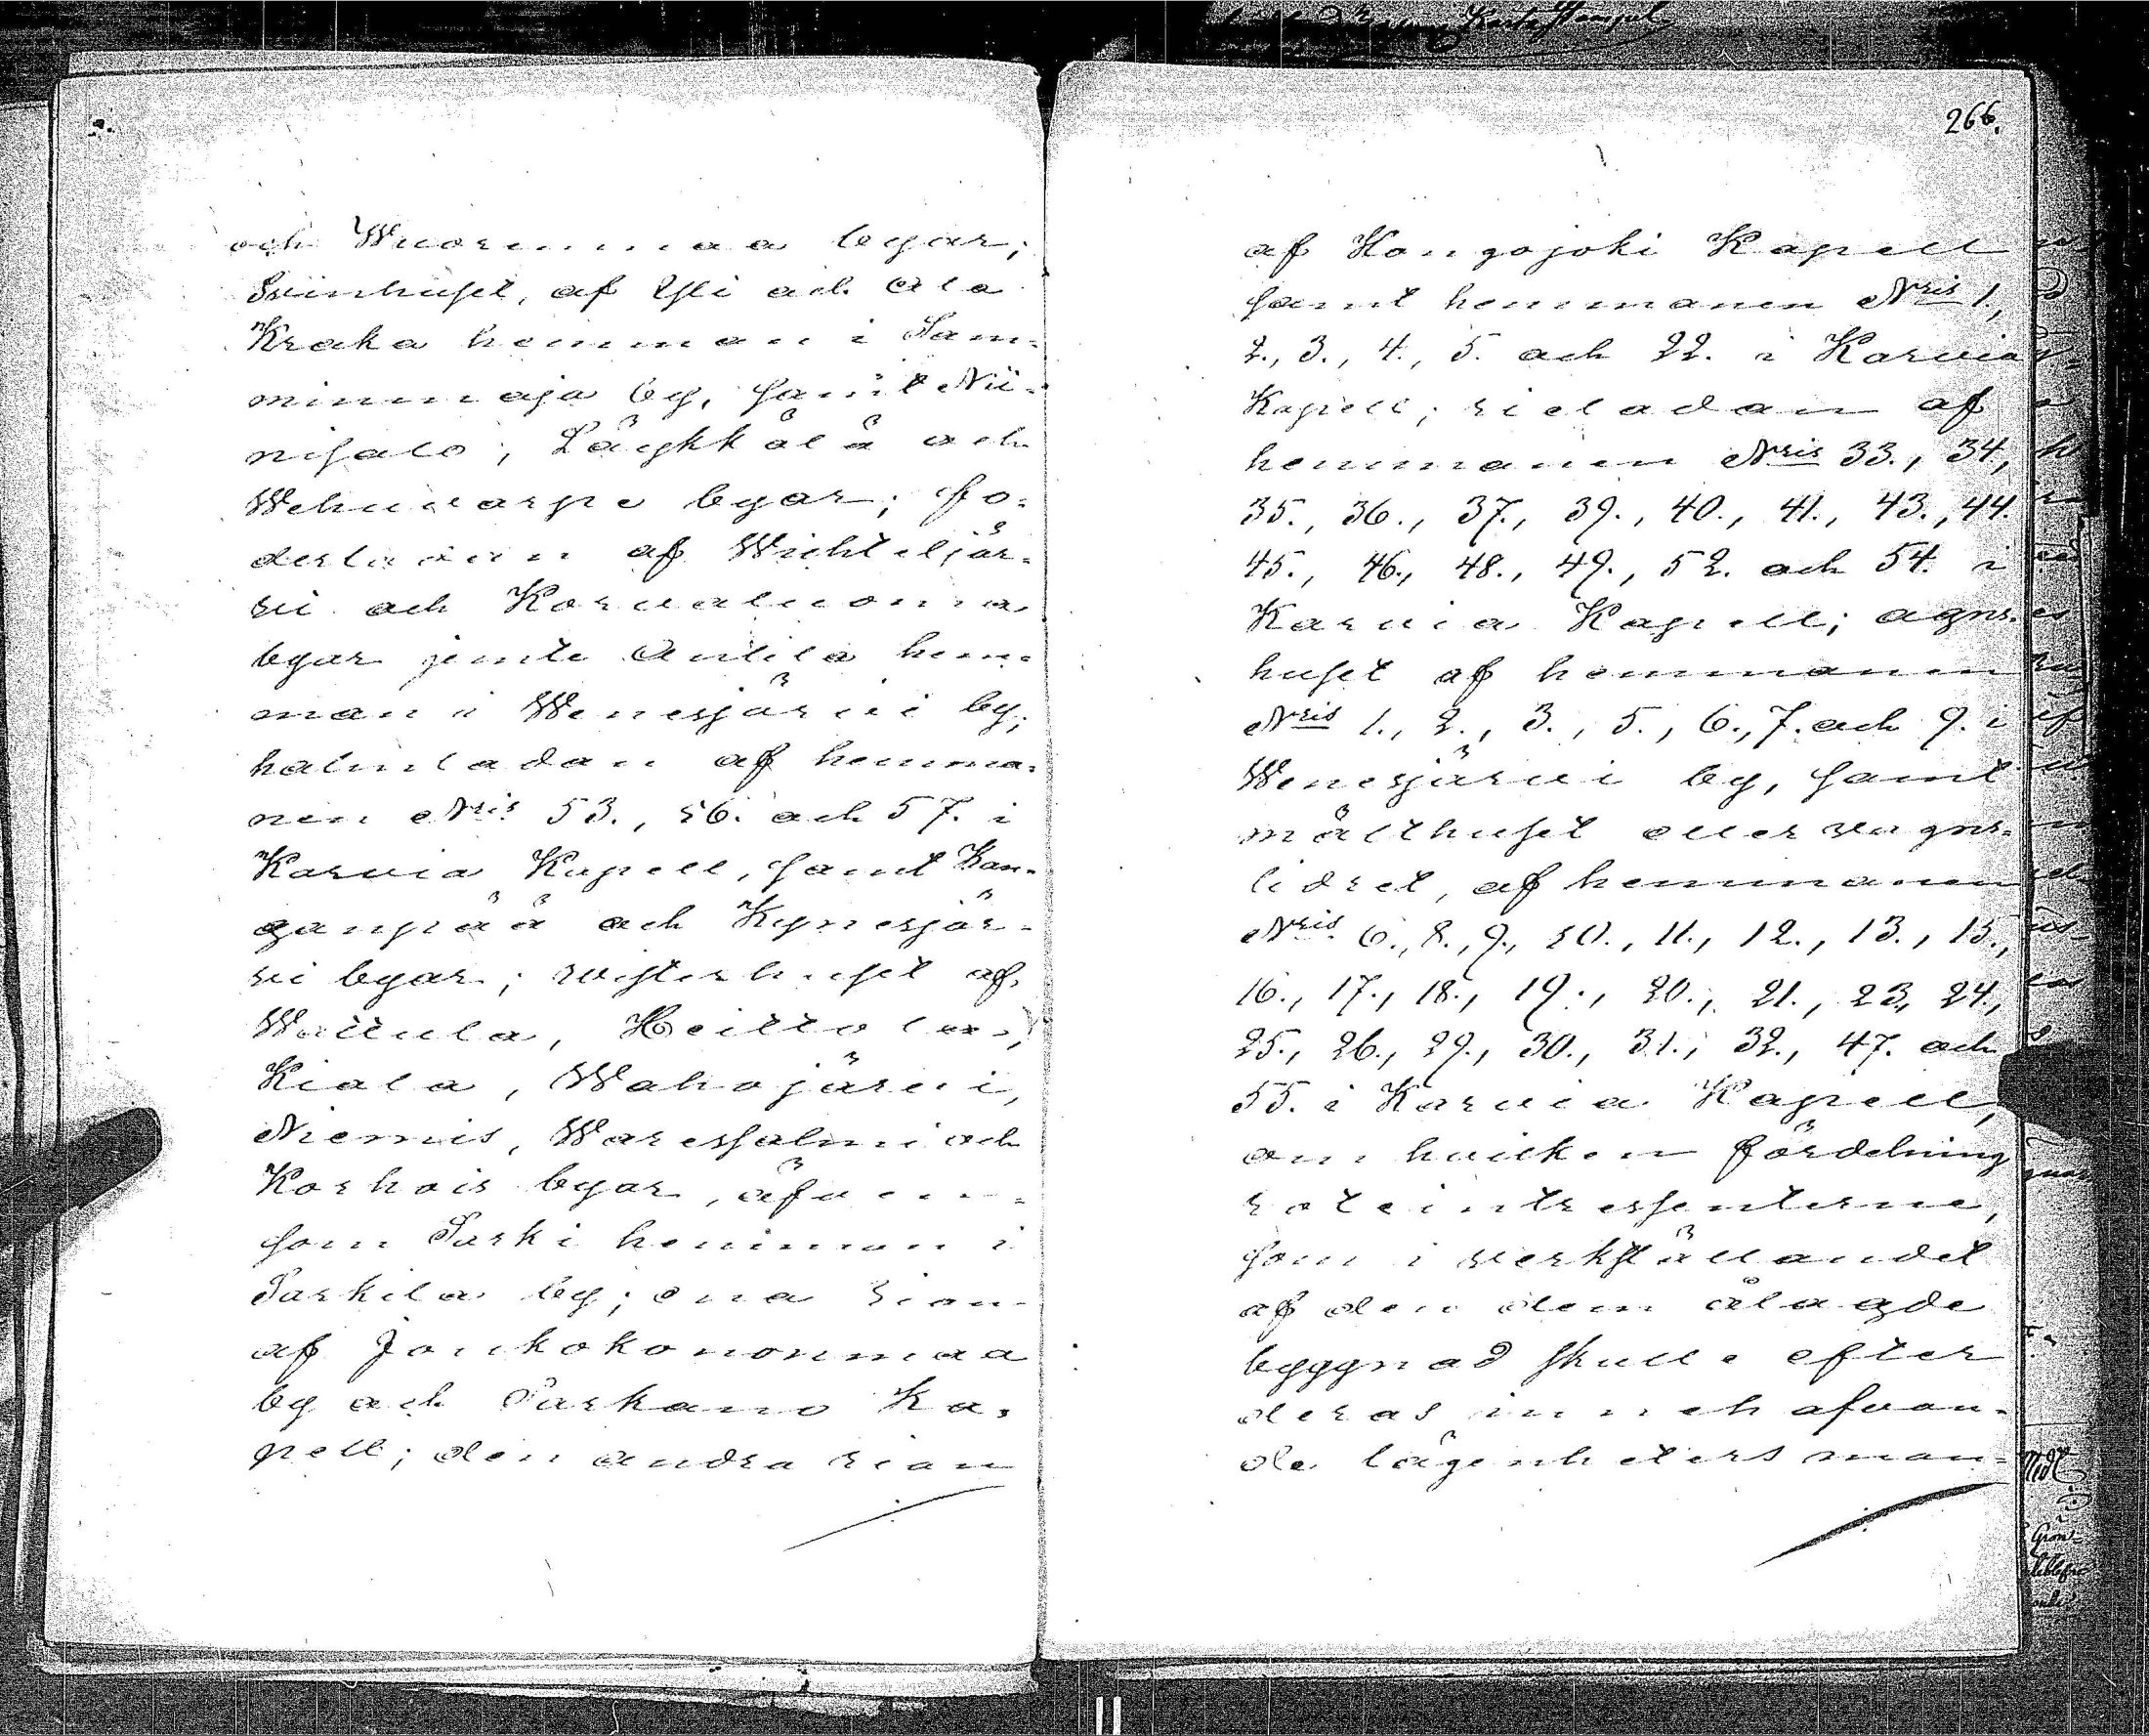 och Wuorenmaa byar;
Svinhuset, af Yli och Ala
Kraka hemman i Sam-
minmaja by, samt Nii-
nisalo, Läykkälä och
Wehuvarpe byar; fo-
derladan af Wichteljär-
vi och Korvaluoma
byar jemte Antila hem-
man i Wenesjärvi by;
halmladan af hemma-
nen N:ris 53., 56. och 57. i
Karvia Kapell, samt Kan-
ganpää och Kynesjär-
vi byar; wisterhuset af
Wattula, Heittola,
Kiala, Wahojärvi,
Niemis, Waressalmi och
Korhois byar, äfven-
som Sarki hemman i
Sarkila by; ena rian
af Joukokononmaa
by och Parkano Ka-
pell; den andra rian
266.
af Hongojoki Kapell
samt hemmanen N:ris 1.,
2., 3., 4., 5. och 22. i Karvia
Kapell; rieladan af
hemmanen N:ris 33., 34.,
35., 36., 37., 39., 40., 41., 43., 44.
45., 46., 48., 49., 52. och 54. i
Karvia Kapell; agns-
huset af hemmanen
N:ris 1., 2., 3., 5., 6., 7. och 9. i
Wenesjärvi by, samt
målthuset eller vagns-
lidret, af hemmanen
N:ris 6., 8., 9., 10., 11., 12., 13., 15.,
16., 17., 18., 19., 20., 21., 23., 24.,
25., 26., 29., 30., 31., 32., 47. och
55. i Karvia Kapell,
om hvilken fördelning
roteintressenterne,
som i verkställandet
af den dem ålagde
byggnad skulle efter
deras innehafvan-
de lägenheters man-